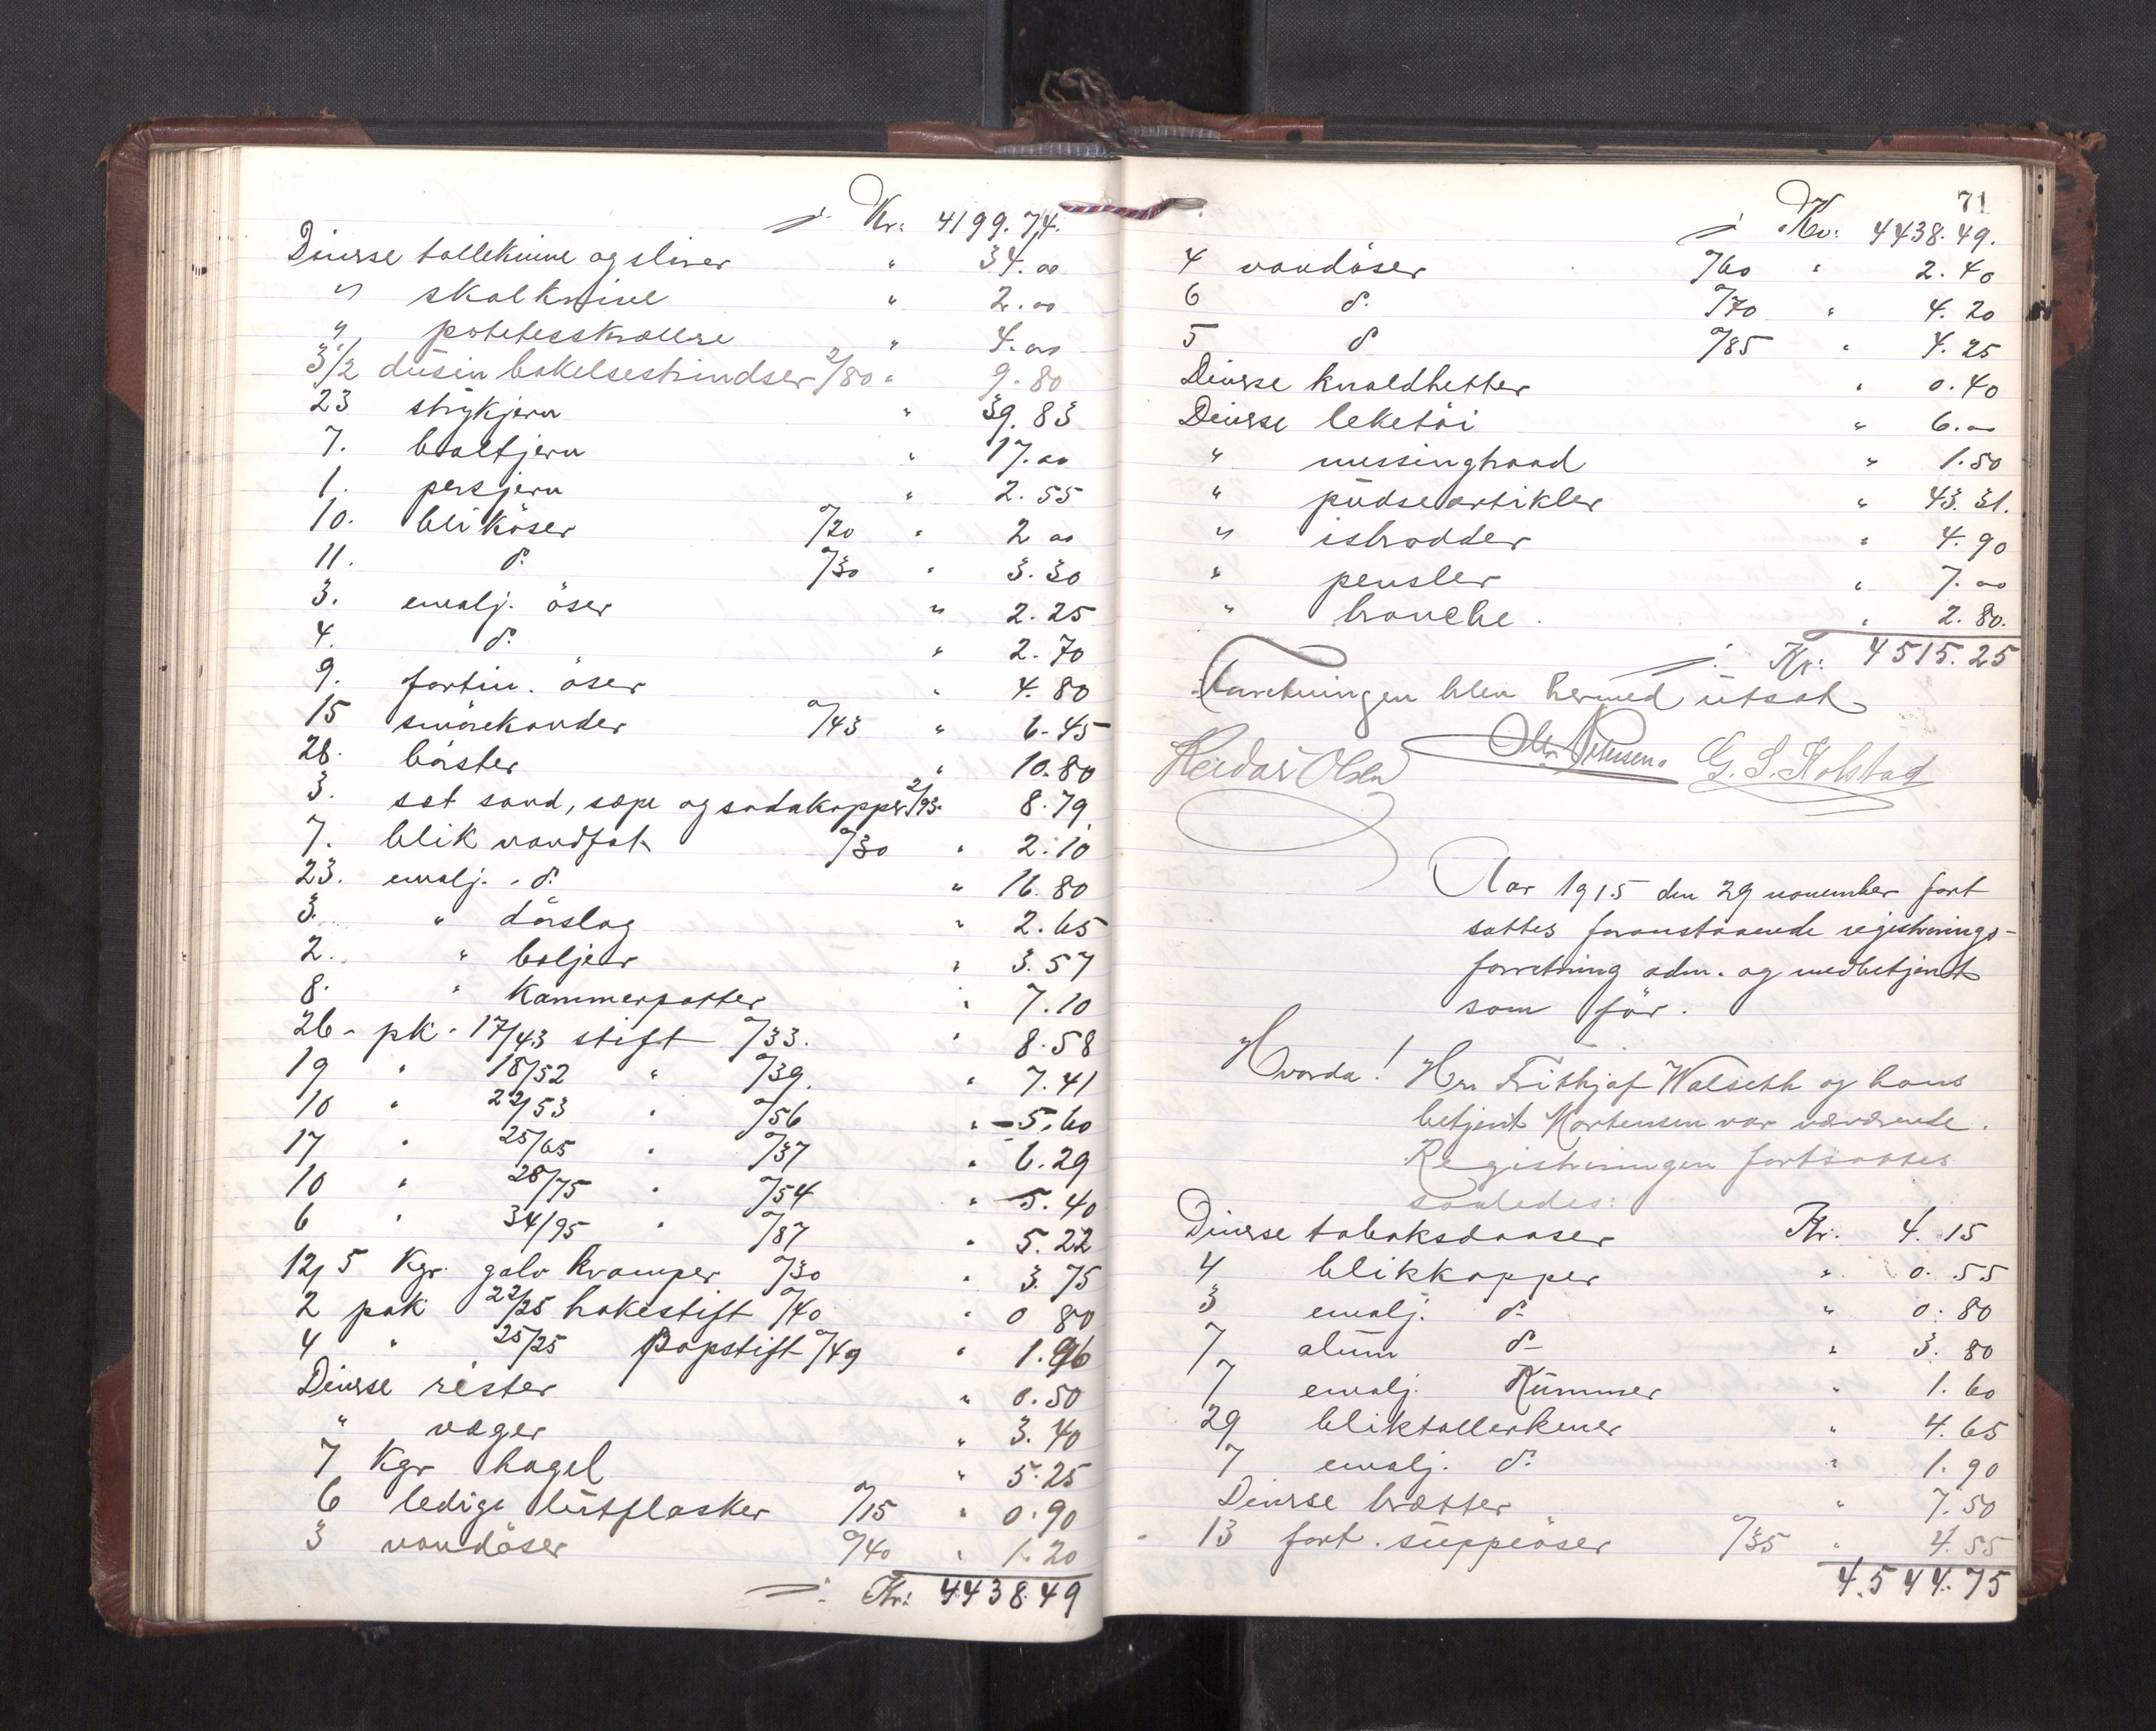 ./. Kr: 4199.74.
Diverse tolleknive og slirer " 34.00
" skalknive " 2.00
" potetesskrællere " 4.00
3 1/2 dusin bakelsestrindser 2/80 " 9.80
23 strykjern " 39.83
7. boltjern " 17.00
1. persjern " 2.55
10. bliköser 0/20 " 2 00
11. do 0/30 " 3.30
3. emalj. öser " 2.25
4. do " 2.70
9. fortin. öser " 4.80
15 smörekander 0/43 " 6.45
28. börster " 10.80
3. sæt sand, sæpe og sodakopper 2/93 8.79
7. blik vandfat 0/30 " 2.10
23. emalj. do " 16.80
3. " dörslag " 2.65
2. " boljer " 3.57
8. " Kammerpotter " 7.10
26 pk. 17/43 stift 0/33. " 8.58
19 " 18/52 " 0/39. " 7.41
10 " 22/53 " 0/56 " 5.60
17 " 25/65 " 0/37 " 6.29
10 " 28/75 " 0/54 " 5.40
6 " 34/95 " 0/87 " 5.22
12,5 Kgr. galv kramper 0/30 " 3.75
2 pak 22/25 hakestift 0/40 " 0 80
4 " 25/25 Papstift 0/49 " 1.96
Diverse rister " 0.50
" væger " 3.40
7 Kgr hagel " 5.25
6 ledige lutflasker 0/15 " 0.90
3 vandöser 0/40 " 1.20
./. Kr: 4438.49
71
./. Kr: 4438.49.
4 vandöser 0/60 " 2.40
6 do 0/70 " 4.20
5 do 0/85 " 4.25
Diverse knaldhetter " 0.40
Diverse leketöi " 6.00
" messingtraad " 1.50
" pudseartikler " 43.31.
" isbrodder " 4.90
" pensler " 7.00
" bronche. " 2.80.
./. Kr: 4515.25
Forretningen blev hermed utsat
Reidar Olsen Petersen. G. S. Kolstad
Aar 1915 den 29 november fort
sattes foranstaaende registrerings-
forretning adm. og medbetjent
som för.
Hvorda! Hr. Frithjof Walseth og hans
betjent Mortensen var nærværende.
Registreringen fortsattes
saaledes:
Diverse tobaksdaaser Kr. 4.15
4 blikkopper " 0.55
3 emalj. do " 0.80
7 alum do " 3.80
7 emalj. Kummer " 1.60
29 bliktallerkener " 4.65
7 emalj. do " 1.90
Diverse brætter " 7.50
13 fort. suppeöser 0/35 " 4.55
4.544.75